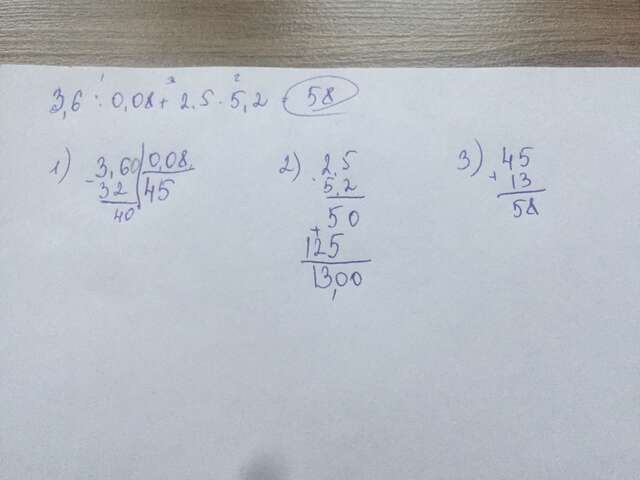 3,6 : 0,08 + 2,5 · 5,2 = 58
1 3 2
1) 3,60 | 0,08
- 32 | 45
40
2) · 2,5
5,2
50
+ 125
13,00
3) 45
+ 13
58